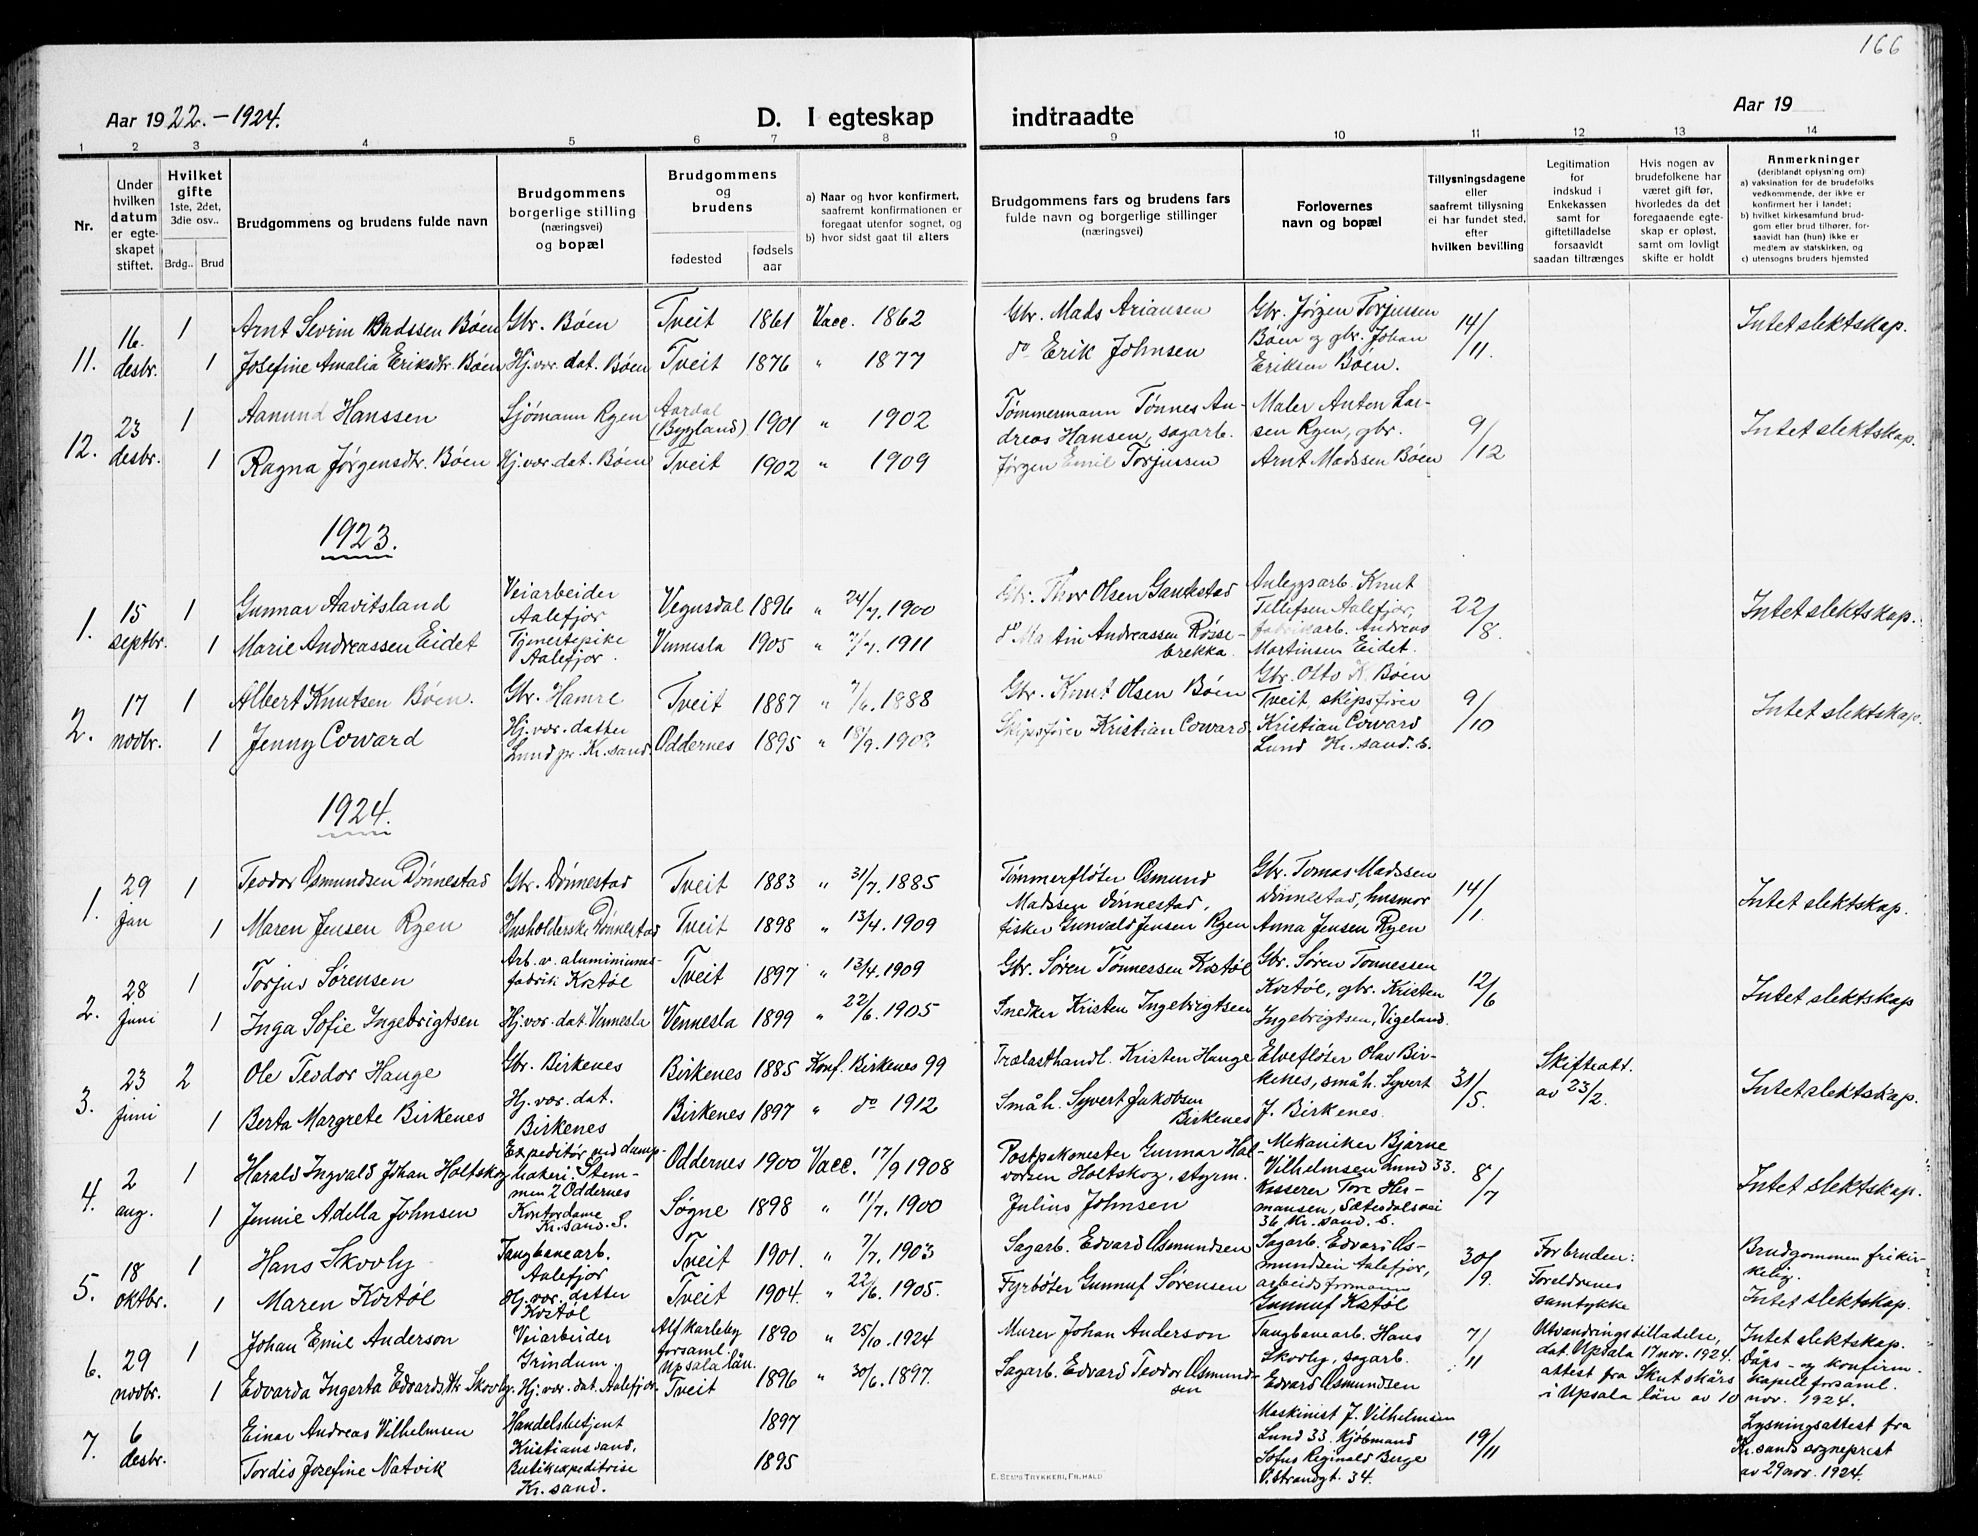 166
Aar 1922.-1924.
D. I egteskap indtraadte
Aar 19
1 2 3 4 5 6 7 8 9 10 11 12 13 14
Nr.
Under hvilken datum er egteskapet stiftet.
Hvilket gifte 1ste, 2det, 3die osv..
Brdg.. Brud
Brudgommens og brudens fulde navn
Brudgommens borgerlige stilling (næringsvei) og bopæl
Brudgommens og brudens
fødested
fødsels aar
a) Naar og hvor konfirmert, saafremt konfirmationen er foregaat utenfor sognet, og
b) hvor sidst gaat til alters
Brudgommens fars og brudens fars fulde navn og borgerlige stillinger (næringsvei)
Forlovernes navn og bopæl
Tillysningsdagene eller saafremt tillysning ei har fundet sted, efter hvilken bevilling
Legitimation for indskud i Enkekassen samt for giftetilladelse forsaavidt saadan tiltrænges
Hvis nogen av brudefolkene har været gift før, hvorledes da det foregaaende egteskap er opløst, samt om lovligt skifte er holdt
Anmerkninger (deriblandt oplysning om)
a) vaksination for de brudefolks vedkommende, der ikke er konfirmert her i landet;
b) hvilket kirkesamfund brudgom eller brud tilhører, forsaavidt han (hun) ikke er medlem av statskirken, og
c) utensogns bruders hjemsted
11. 16. desbr. 1 Arnt Sevrin Madssen Bøen Gbr. Bøen Tveit 1861 Vacc. 1862 Gbr. Mads Ariansen Gbr. Jørgen Torjussen Bøen og gbr. Johan Eriksen Bøen. 14/11. Intet slektskap.
1 Josefine Amalia Eriksdtr. Bøen Hj.vær. dat. Bøen Tveit 1876 " 1877 do Erik Johnsen
12. 23 desbr. 1 Aanund Hanssen Sjømann Ryen Aardal (Bygland) 1901 " 1902 Tømmermann Tønnes Andreas Hansen, sagarb. Maler Anton Larsen Ryen, gbr. Arnt Madssen Bøen 9/12 Intet slektskap.
1 Ragna Jørgensdtr. Bøen Hj.vær. dat. Bøen Tveit 1902 " 1909 Jørgen Emil Torjussen
1923.
1. 15 septbr. 1 Gunnar Aavitsland Veiarbeider Aalefjær Vegusdal 1896 " 24/7. 1900 Gbr. Thor Olsen Anleggsarb. Knut Tellefsen Aalefjær, fabrikarb. Andreas Martinsen Eidet. 22/8. Intet slektskap.
1 Marie Andreassen Eidet Tjenestepike Aalefjær. Vennesla 1905 " 7/7. 1911 do Martin Andreassen Røssebrekka.
2. 17 novbr. 1 Albert Knutsen Bøen. Gbr. Hamre Tveit 1887 " 7/6. 1888 Gbr. Knut Olsen Bøen Gbr. Otto K. Bøen Tveit, skipsfører Kristian Coward Lund Kr.sand. S. 9/10 Intet slektskap.
1 Jenny Coward Hj.vær. datter Lund pr. Kr.sand. Oddernes 1895 " 18/9. 1908. Skipsfører Kristian Coward
1924.
1. 29 jan 1 Teodor Osmundsen Dønnestad Gbr. Dønnestad Tveit 1883 " 31/7. 1885 Tømmerfløter Osmund Madssen Dønnestad, Gbr. Tomas Madssen Dønnestad, husmor Anna Jensen Ryen 14/1. Intet slektskap.
1 Maren Jensen Ryen Husholderske Dønnestad Tveit 1898 " 13/4. 1909 fisker Gunvald Jensen Ryen
2. 28 juni 1 Torjus Sørensen Arb. v. aluminiumsfabrik Kostøl Tveit 1897 " 13/4. 1909 Gbr. Søren Tønnessen Kostøl Gbr. Søren Tønnessen Kostøl, gbr. Kristen Ingebrigtsen, Vigeland. 12/6 Intet slektskap
1 Inga Sofie Ingebrigtsen Hj.vær. dat. Vennesla Vennesla 1899 " 22/6. 1905 Snedker Kristen Ingebrigtsen
3. 23 juni 2 Ole Teodor Hauge Gbr. Birkenes Birkenes 1885 Konf. Birkenes 99 Trælasthandl. Kristen Hauge Elvefløter Olav Birkenes, småh. Syvert J. Birkenes. 31/5. Skifteatt. av 23/2. Intet slektskap.
1 Berta Margrete Birkenes Hj.vær. dat. Birkenes Birkenes 1897 " do 1912 Småh. Syvert Jakobsen Birkenes
4. 2 aug. 1 Harald Ingvald Johan Holtskog Expeditør ved dampbakeri. Oddernes Oddernes 1900 Vacc. 17/9 1908 Gunnar Halvorsen Holtskog, styrm. Mekaniker Bjarne Vilhelmsen Lund 33. Kasserer Tore Hermansen, Sætesdalsvei 36 Kr.sand. S. 8/7 Intet slektskap.
1 Jennie Adella Johnsen Kontordame Kr.sand. S. Søgne 1898 " 11/7. 1900 Julius Johnsen
5. 18 oktbr. 1 Hans Skovly Taugbanearb. Aalefjær Tveit 1901. " 7/7. 1903 Sagarb. Edvard Osmundsen Sagarb. Edvard Osmundsen Aalefjær, arbeidsformann Gunnuf Kostøl 30/9. For bruden: Foreldrenes samtykke Brudgommen frikirkelig. Intet slektskap.
1 Maren Kostøl Hj.vær. datter Kostøl Tveit 1904. " 22/6. 1905. Fyrbøter Gunnuf Sørensen
6. 29 novbr. 1 Johan Emil Anderson Veiarbeider Grindum Alfkarleby forsaml. Upsala län. 1890 " 25/10. 1924 Murer Johan Anderson Taugbanearb. Hans Skovly, sagarb. Edvard Osmundsen 7/11 Utvandringstilladelse, dat. Upsala 17 nov. 1924. attest fra Skutskärs i Upsala län av 10 nov. 1924. Intet slektskap. Dåps- og konfirm. kapellforsaml.
1 Edvarda Ingerta Edvardsdtr. Skovly. Hj.vær. dat. Aalefjær Tveit 1896 " 30/6. 1897. Sagarb. Edvard Teodor Osmundsen
7. 6 desbr. Einar Andreas Vilhelmsen Handelsbetjent Kristianssand. 1897 Maskinist J. Vilhelmsen Lund 33. Kjøbmand Sofus Reginald Berge V.strandgt. 34. 19/11 Lysningsattest fra Kr.sands sogneprest av 29 nov. 1924.
Tordis Josefine Natvik Butikexpeditrise Kr.sand. 1895
E. SEMS TRYKKERI, FR.HALD